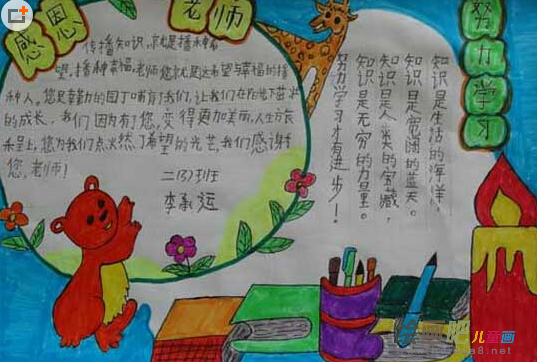 感恩
老师
传播知识,就是播种希
望,播种幸福,老师您就是这希望与幸福的播
种人。您是辛勤的园丁哺育了我们,让我们在阳光下茁
的成长,我们因为有您,变得更加美丽,人生旅
途上,您为我们点燃了希望的光芒,我们感谢
您,老师!
二(3)班
李承运
努力学习
知识是生活的海洋,
知识是宽阔的蓝天。
知识是人类的宝藏,
知识是无穷的力量。
努力学习才有进步!
儿童画
a8.net